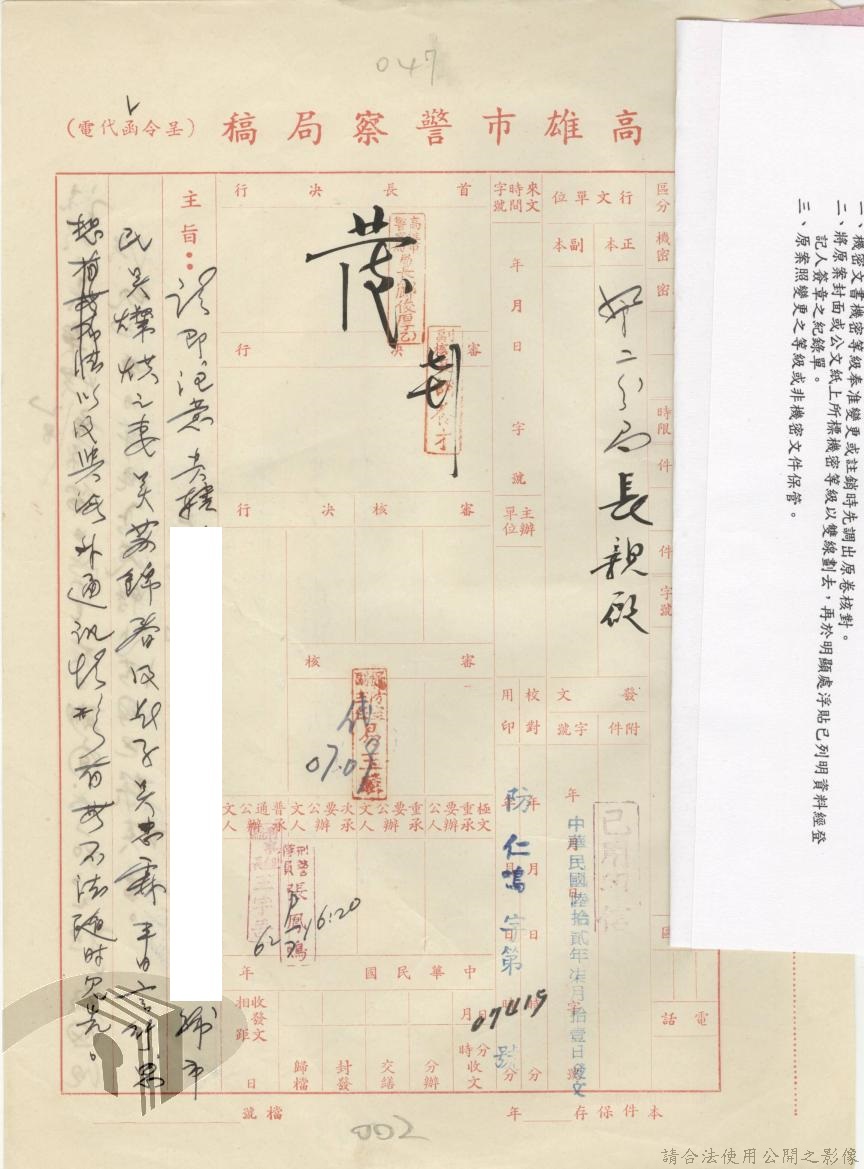 047
高雄市警察局稿
(呈令函代電)
一、機密文書機密等級奉准變更或註銷時先調出原卷核對。
二、將原案封面或公文紙上所標機密等級以雙線劃去,再於明顯處浮貼已列明資料經登
記人簽章之紀錄單。
三、原案照變更之等級或非機密文件保管。
區分
機密
密
時限
件
件
字號
電話
行文單位
正本
副本
分局長親啟
發文
附件
字號
中華民國陸拾貳年柒月拾壹日發文
年
月
日
字
號
來文
時間
字號
年
月
日
字號
主辦
單位
校對
用印
防仁鳴字第
07419
號
年
月
日
時
分
首長決行
審核決行
審核決行
審核
07.0
極重要公文承辦人
重要公文承辦人
次要公文承辦人
普通公文承辦人
刑警隊員張鳳鳴
16:20
中華民國
年
月
日
時分
收文
分辦
交繕
封發
歸檔
收發文相距
日
主旨:
請即注意貴轄
號市
民吳燦煌之妻吳蔡錦蓉及長子吳志霖平日言行思
想有無不法以及與海外通訊情形有無不法隨時見告。
本件保存
年
檔號
002
請合法使用公開之影像